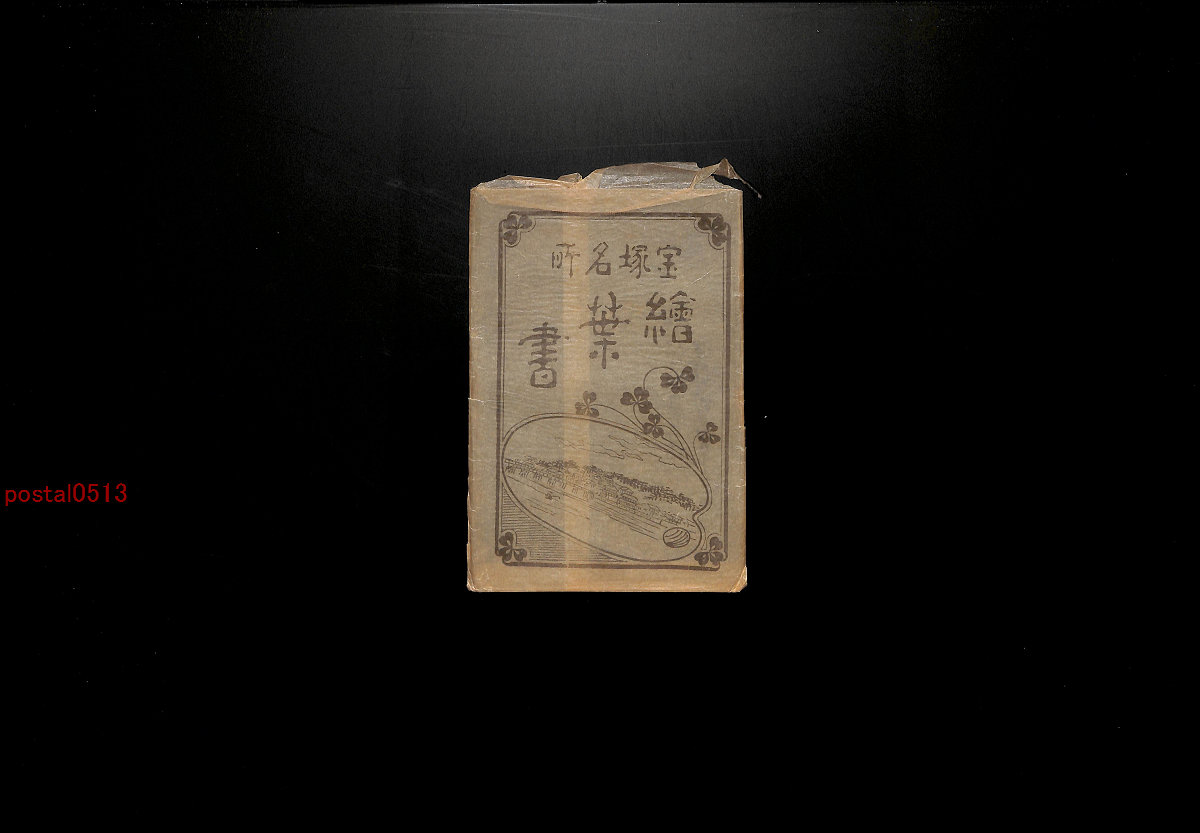 宝塚名所
繪葉書
postal0513